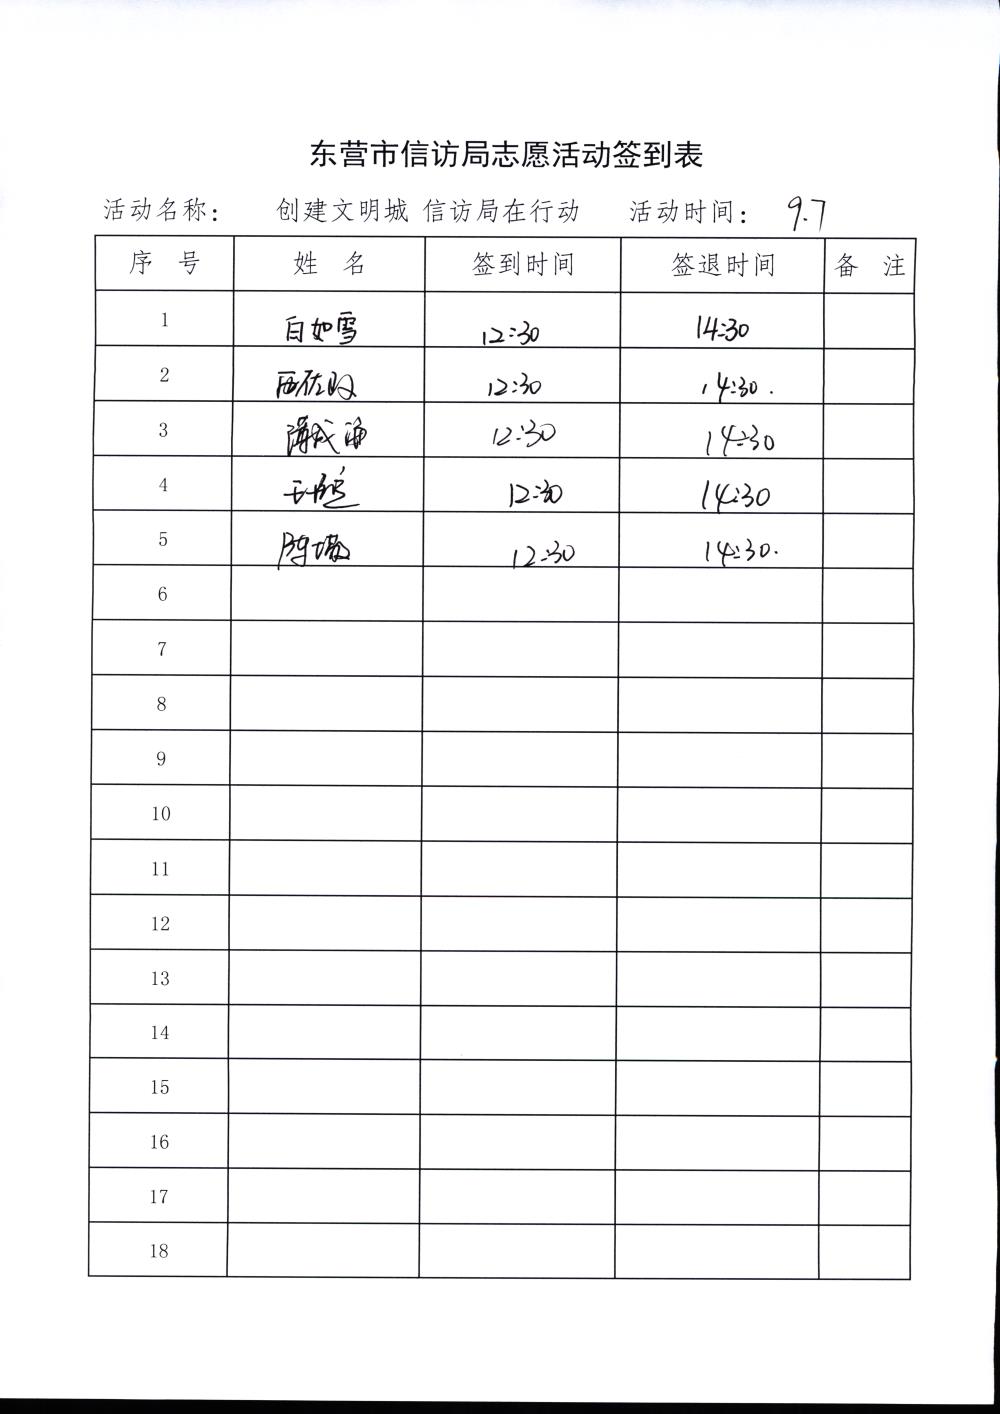 东营市信访局志愿活动签到表
活动名称： 创建文明城 信访局在行动 活动时间： 9.7
序 号 姓 名 签到时间 签退时间 备 注
1 白如雪 12:30 14:30
2 12:30 14:30.
3 12:30 14:30
4 12:30 14:30
5 12:30 14:30.
6
7
8
9
10
11
12
13
14
15
16
17
18